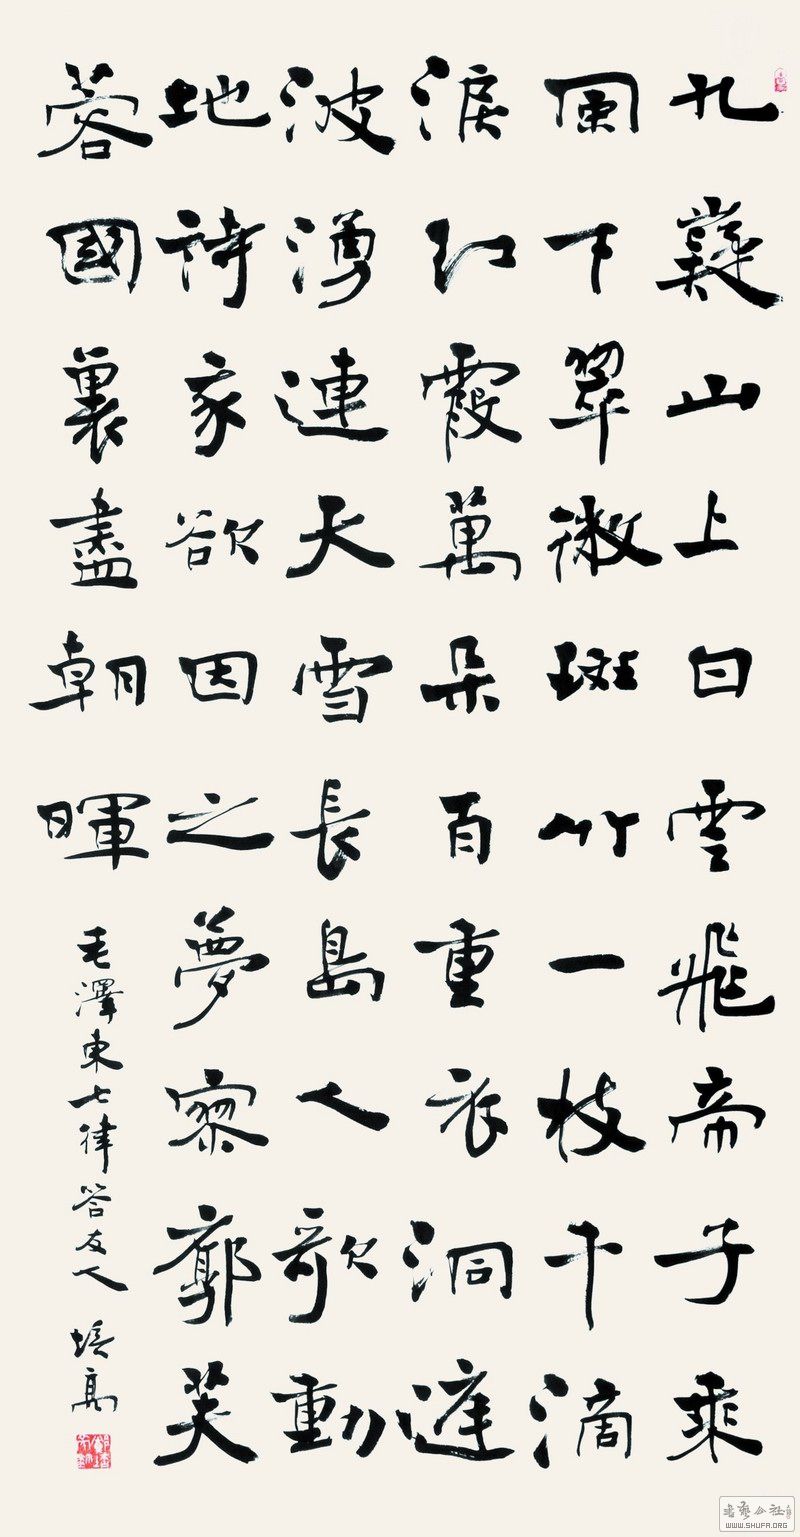 九嶷山上白雲飛帝子乘
風下翠微斑竹一枝千滴
淚紅霞萬朵百重衣洞庭
波湧連天雪長島人歌動
地詩家欲因之夢寥廓芙
蓉國裏盡朝暉
毛澤東七律答友人 培高
書藝公社
WWW.SHUFA.ORG